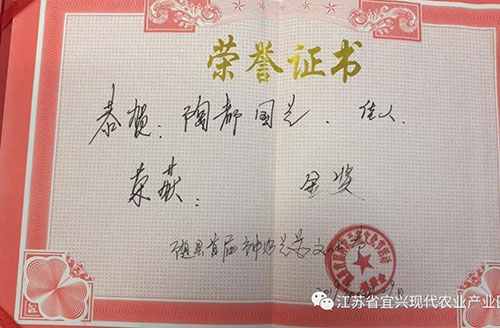 荣誉证书
恭贺：陶都国兰．佳人．
荣获： 金奖
随县首届神农兰花文化节
江苏省宜兴现代农业产业